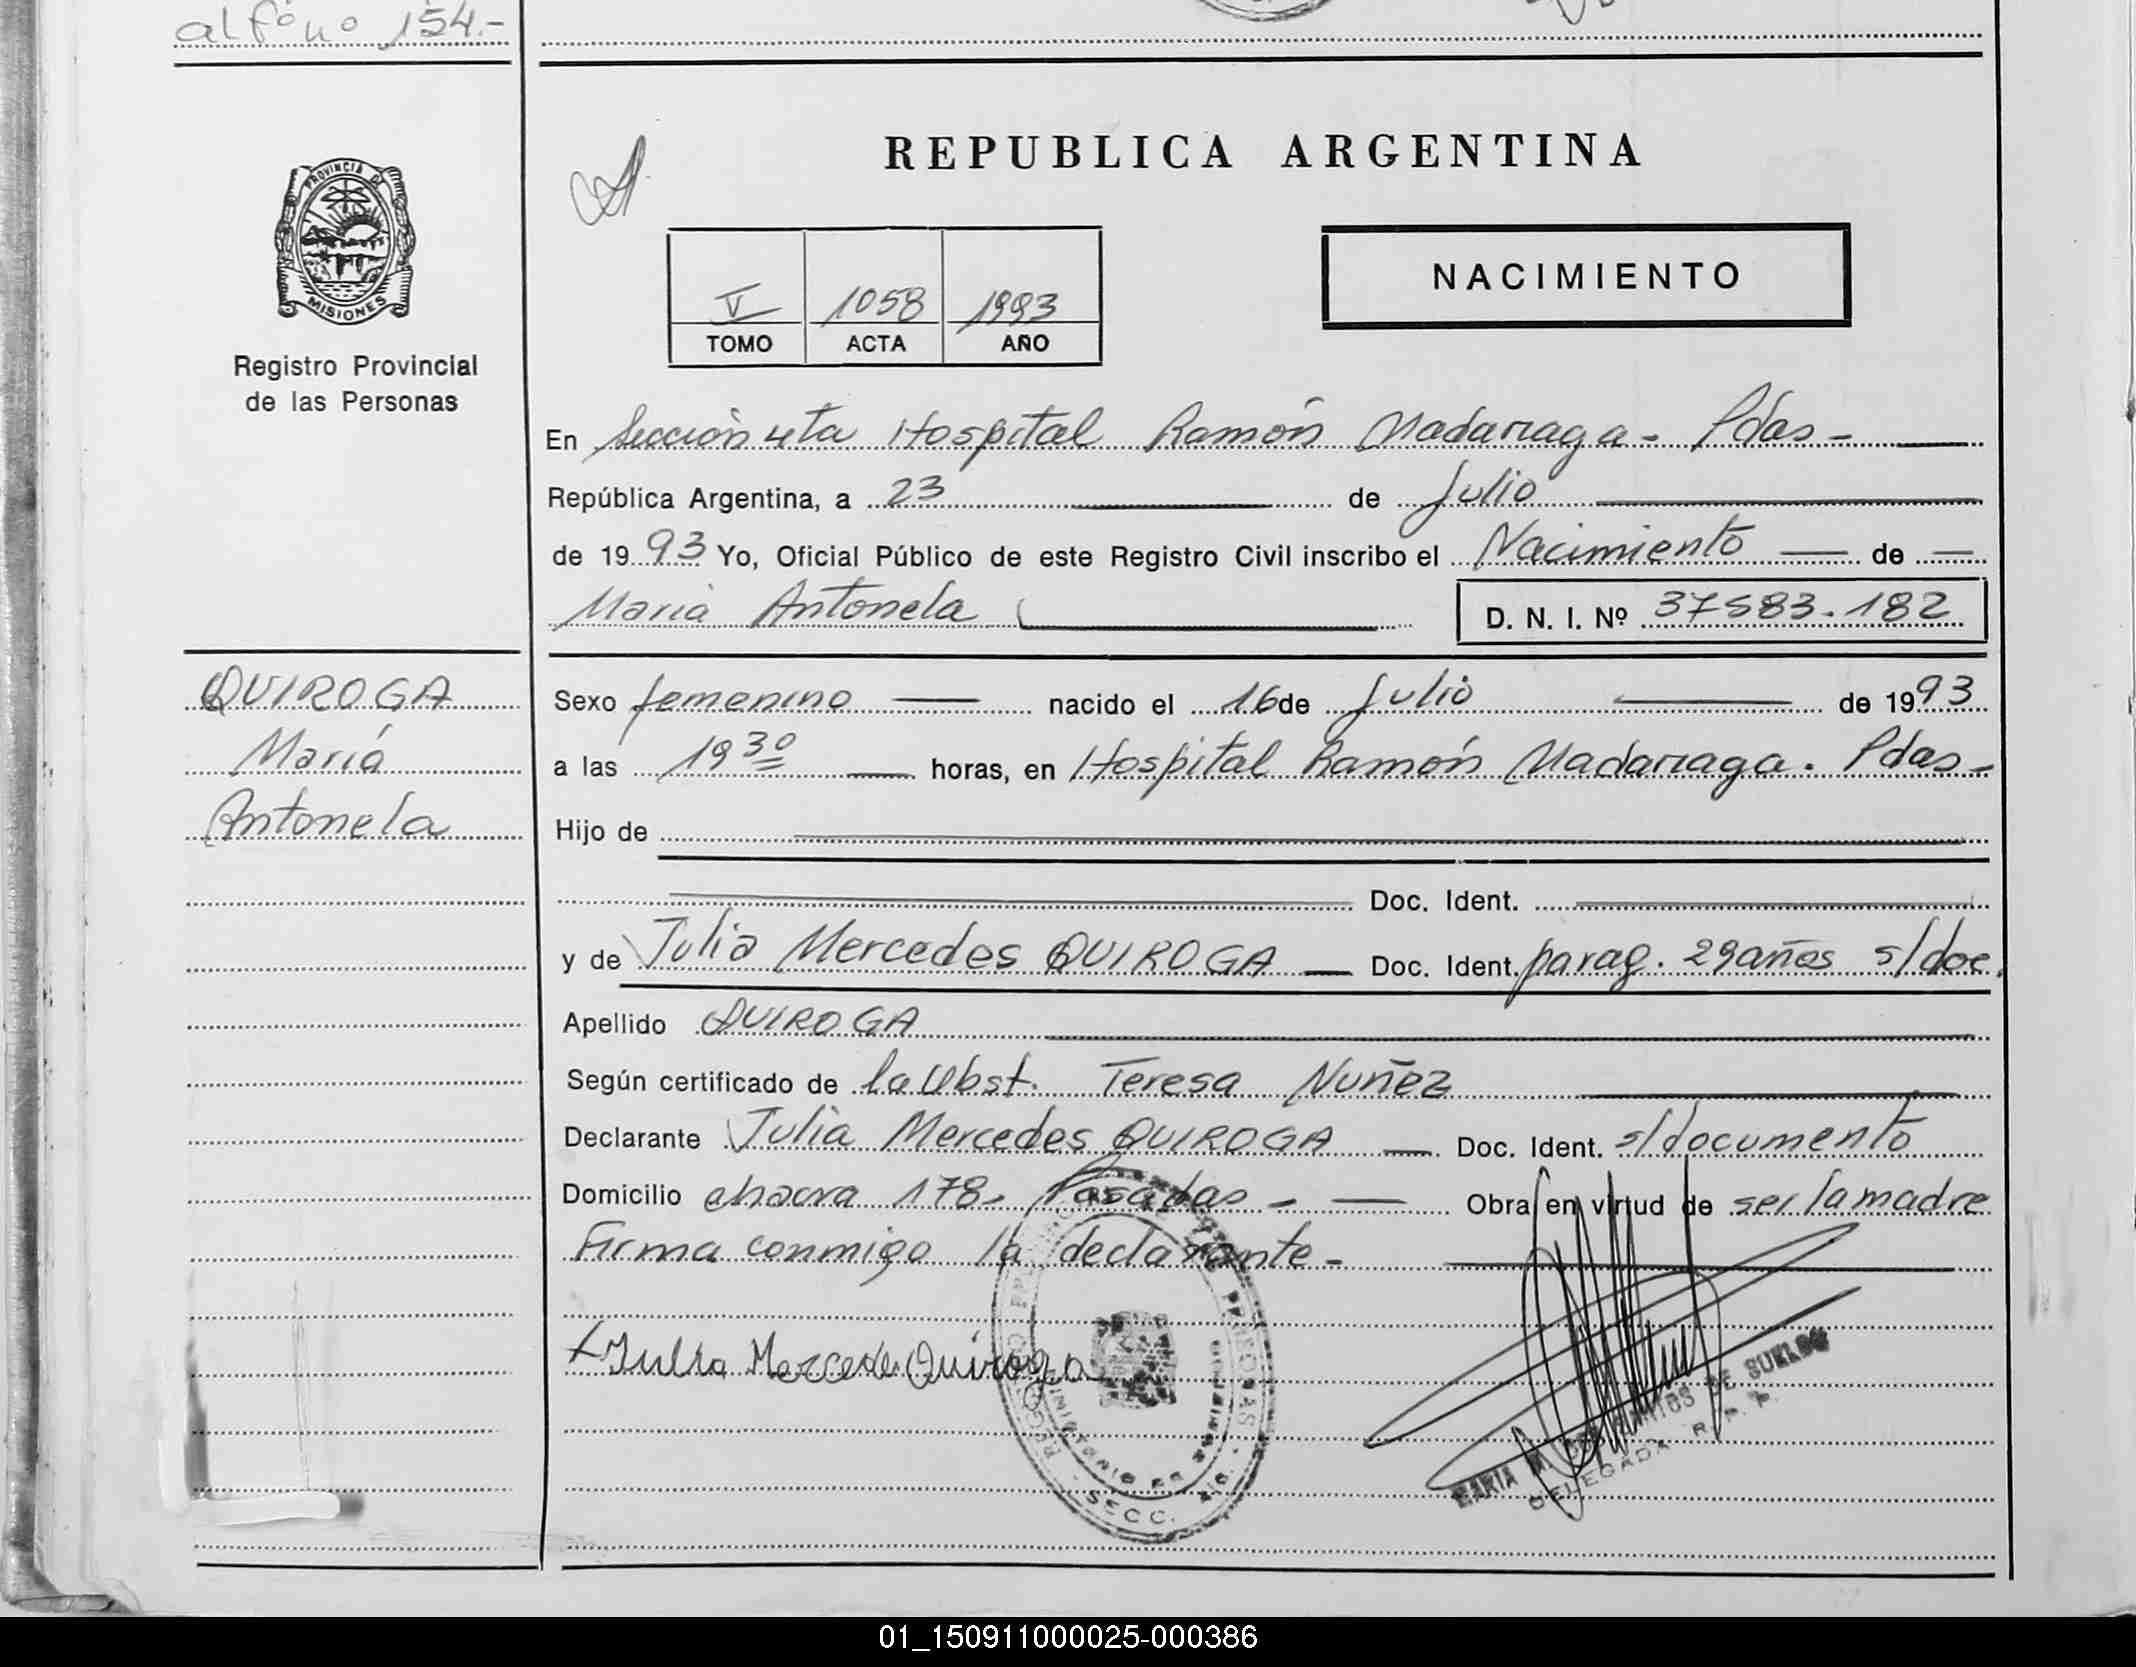 alfono 154.-
PROVINCIA DE
MISIONES
Registro Provincial
de las Personas
REPUBLICA ARGENTINA
NACIMIENTO
V 1058 1993
TOMO ACTA AÑO
En Sección 4ta Hospital Ramón Madariaga - Pdas -
República Argentina, a 23 de Julio
de 1993 Yo, Oficial Público de este Registro Civil inscribo el Nacimiento de
María Antonela D. N. I. Nº 37583.182
QUIROGA
María
Antonela
Sexo femenino nacido el 16 de Julio de 1993
a las 19 30 horas, en Hospital Ramón Madariaga. Pdas-
Hijo de
Doc. Ident.
y de Julia Mercedes QUIROGA Doc. Ident. parag. 29 años s/doc.
Apellido QUIROGA
Según certificado de la Obst. Teresa Nuñez
Declarante Julia Mercedes QUIROGA Doc. Ident. s/documento
Domicilio chacra 178- Posadas - Obra en virtud de ser la madre
Firma conmigo la declarante -
Julia Mercede Quiroga
SECC.
DE SUELDO
MARIA
DELEGADA R. P. P.
01_150911000025-000386